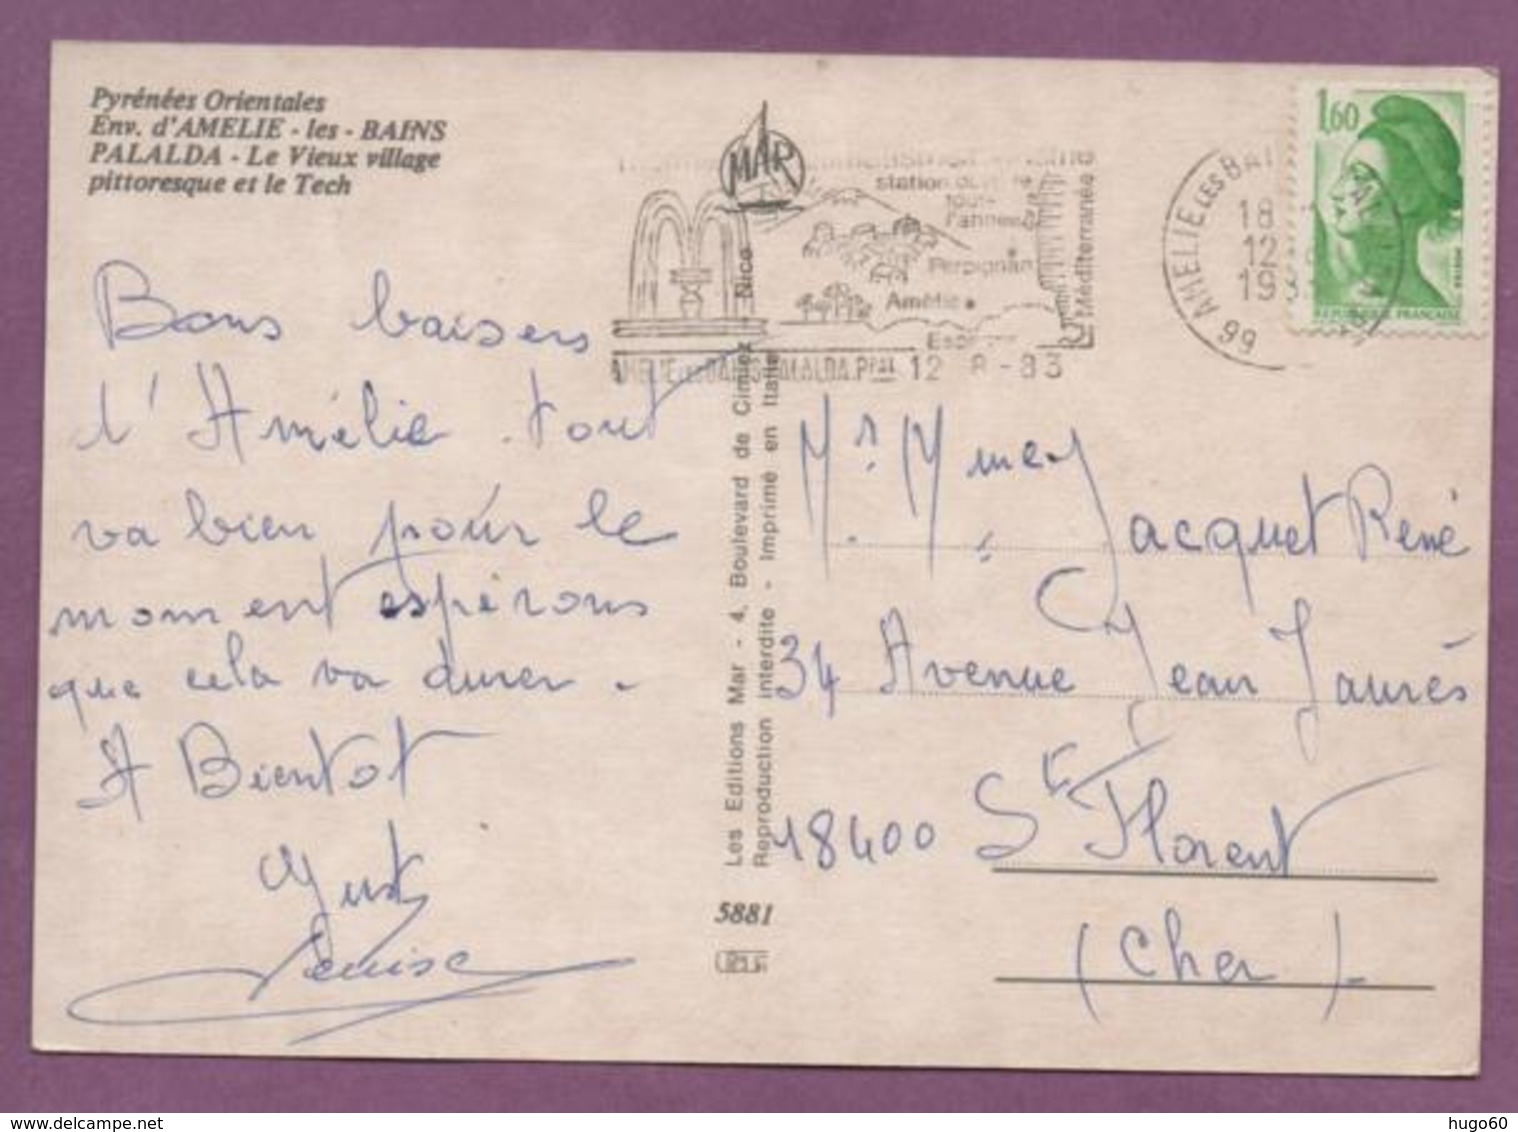 Pyrénées Orientales
Env. d'AMELIE - les - BAINS
PALALDA - Le Vieux village
pittoresque et le Tech
MAR
station
tout
l'année
Perpignan
Amélie
Méditerranée
12 8 - 83
AMELIE LES BAI
18
12
19
66
1,60
REPUBLIQUE FRANÇAISE
Bons baisers
d'Amélie. tout
va bien pour le
moment espérons
que cela va durer.
A Bientot
Denise
Les Editions Mar - 4, Boulevard de Cimiez Nice
Reproduction interdite - Imprimé en Italie
5881
Mr. Mme
Jacquet René
34 Avenue Jean Jaurès
18400 St Florent
(Cher).
delcampe.net
hugo60